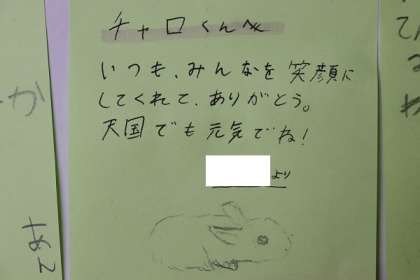 チャロくんへ
いつも、みんなを笑顔に
してくれて、ありがとう。
天国でも元気でね!
より